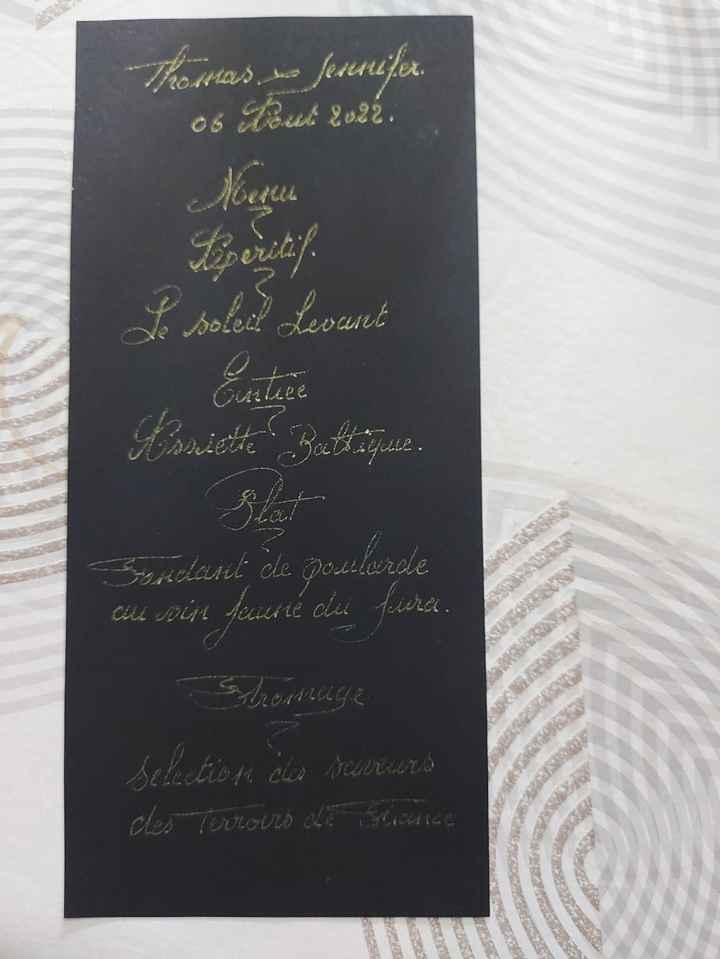 Thomas & Jennifer.
06 Aout 2022.
Menu
Apéritif.
Le soleil Levant
Entrée
Assiette Baltique.
Plat
Fondant de poularde
au vin jaune du Jura.
Fromage
Selection des saveurs
des Terroirs de France